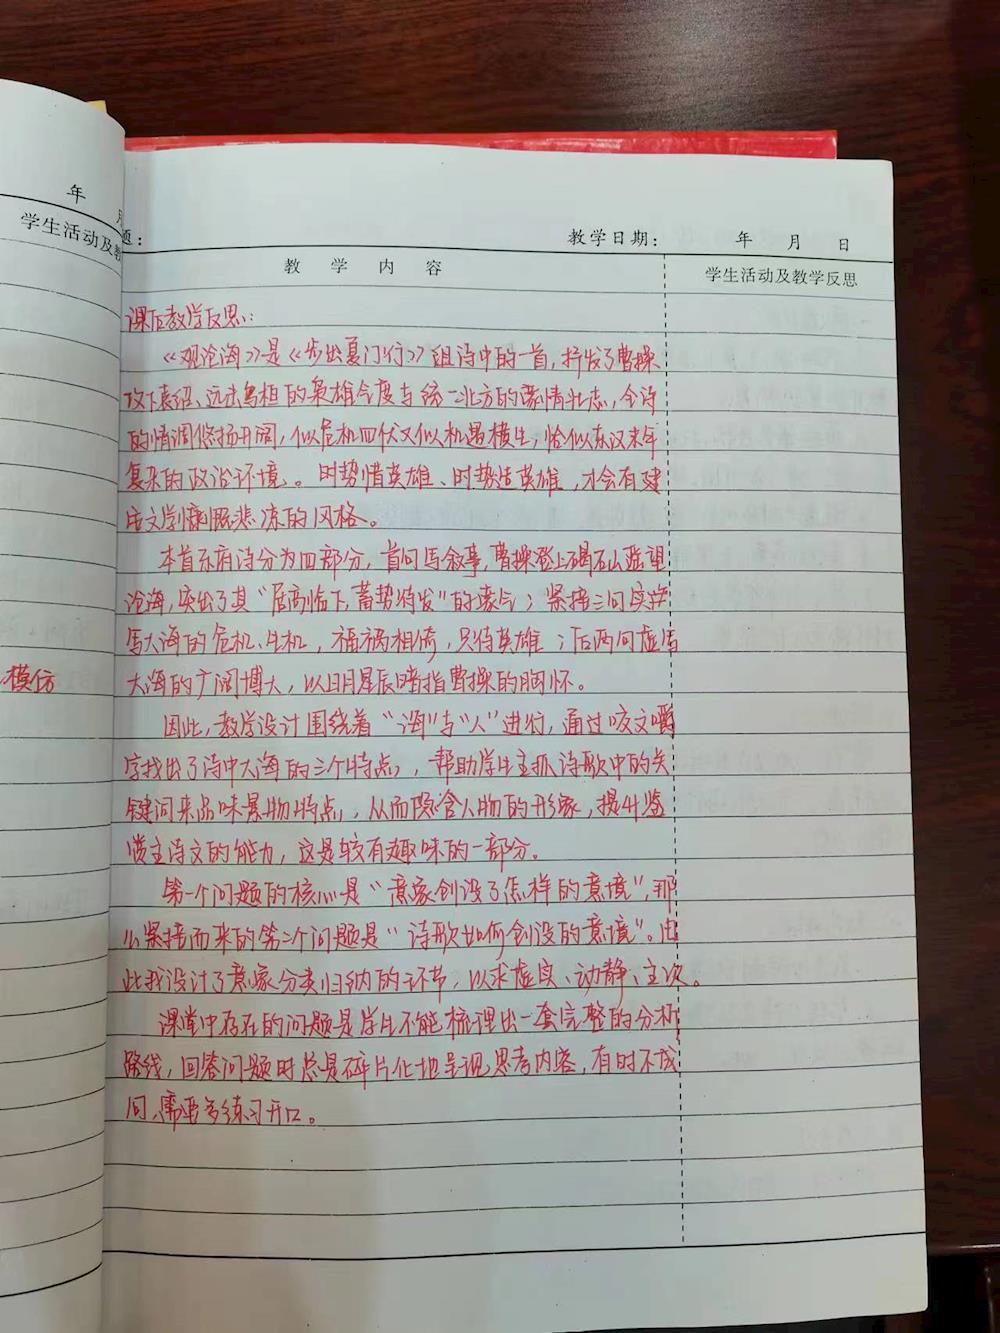 年 月
学生活动及教
模仿
题：
教学日期： 年 月 日
教 学 内 容
学生活动及教学反思
课后教学反思：
《观沧海》是《步出夏门行》组诗中的一首，抒发了曹操
攻下袁绍、远击乌桓的枭雄气度与统一北方的豪情壮志，全诗
的情调悠扬开阔，似危机四伏又似机遇横生，恰似东汉末年
复杂的政治环境。时势惜英雄、时势造英雄，才会有建
安文学慷慨悲凉的风格。
本首乐府诗分为四部分，首句写叙事，曹操登上碣石山遥望
沧海，突出了其“居高临下，蓄势待发”的豪气；紧接三句实
写大海的危机、生机，福祸相倚，只待英雄；后两句虚写
大海的广阔博大，以日月星辰暗指曹操的胸怀。
因此，教学设计围绕着“海”与“人”进行，通过咬文嚼
字找出了诗中大海的三个特点，帮助学生抓诗歌中的关
键词来品味景物特点，从而隐含人物的形象，提升鉴
赏诗文的能力，这是较有趣味的一部分。
第一个问题的核心是“意象创设了怎样的意境”，那
么紧接而来的第二个问题是“诗歌如何创设的意境”。由
此我设计了意象分类归纳的环节，以求虚实、动静、主次。
课堂中存在的问题是学生不能梳理出一套完整的分析
路线，回答问题时总是碎片化地呈现思考内容，有时不成
句，需要多练习开口。